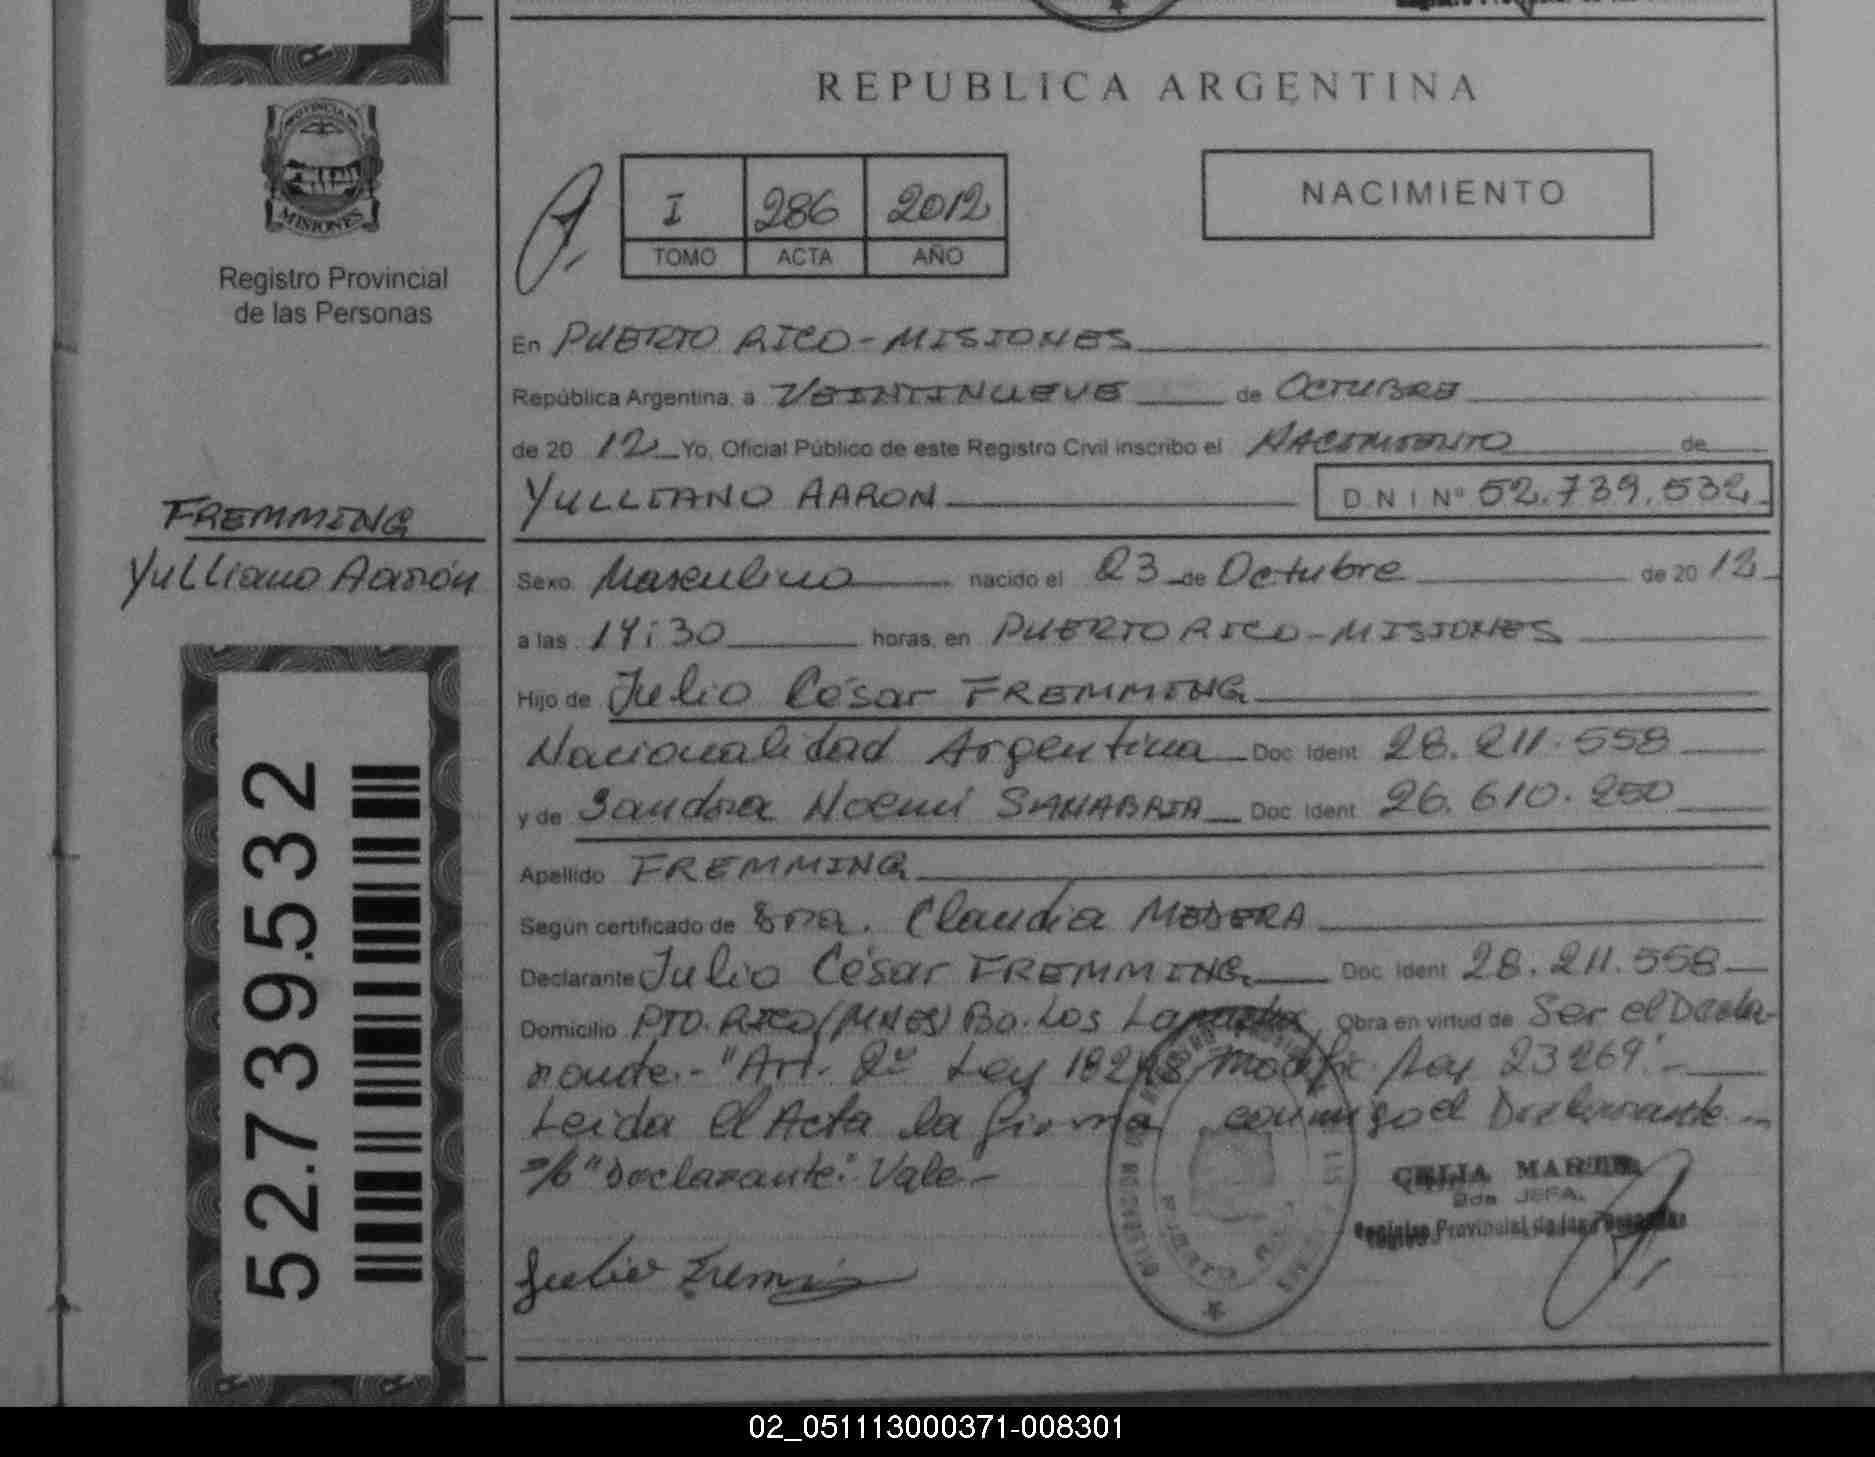 REPUBLICA ARGENTINA
PROVINCIA DE
MISIONES
Registro Provincial
de las Personas
I 286 2012
TOMO ACTA AÑO
NACIMIENTO
En PUERTO RICO - MISIONES
República Argentina, a VEINTINUEVE de OCTUBRE
de 20 12 Yo, Oficial Público de este Registro Civil inscribo el NACIMIENTO de
YULLIANO AARON D N I Nº 52.739.532
FREMMING
Yulliano Aarón
Sexo Masculino nacido el 23 de Octubre de 20 12
a las 14:30 horas, en PUERTO RICO - MISIONES
Hijo de Julio César FREMMING
Nacionalidad Argentina Doc Ident 28.211.558
y de Sandra Noemí SANABRIA Doc Ident 26.610.250
Apellido FREMMING
Según certificado de Sra. Claudia MEDERA
Declarante Julio César FREMMING Doc Ident 28.211.558
Domicilio PTO. RICO (MNES) Bo. Los Obra en virtud de Ser el Decla-
rante.- "Art. 2º Ley 18248 modific. Ley 23269".-
Leida el Acta la firma conmigo el Declarante.-
"Declarante": Vale.-
CELIA
2da JEFA.
Registro Provincial de las Personas
Julio
52.739.532
02_051113000371-008301